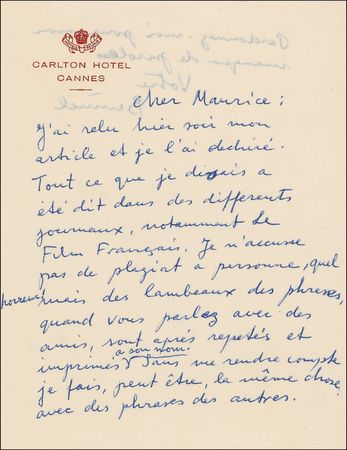 CARLTON HOTEL
CANNES
cher Maurice:
J'ai relu hier soir mon
article et je l'ai dechiré.
Tout ce que je disais a
été dit dans des differents
journaux, notamment Le
Film Français. Je n'accuse
pas de plagiat a personne, quel
horreur! mais des lambeaux des phrases,
quand vous parlez avec des
amis, sont après repetés et
imprimés a son nom. Sans me rendre compte
je fais, peut être, la même chose
avec des phrases des autres.